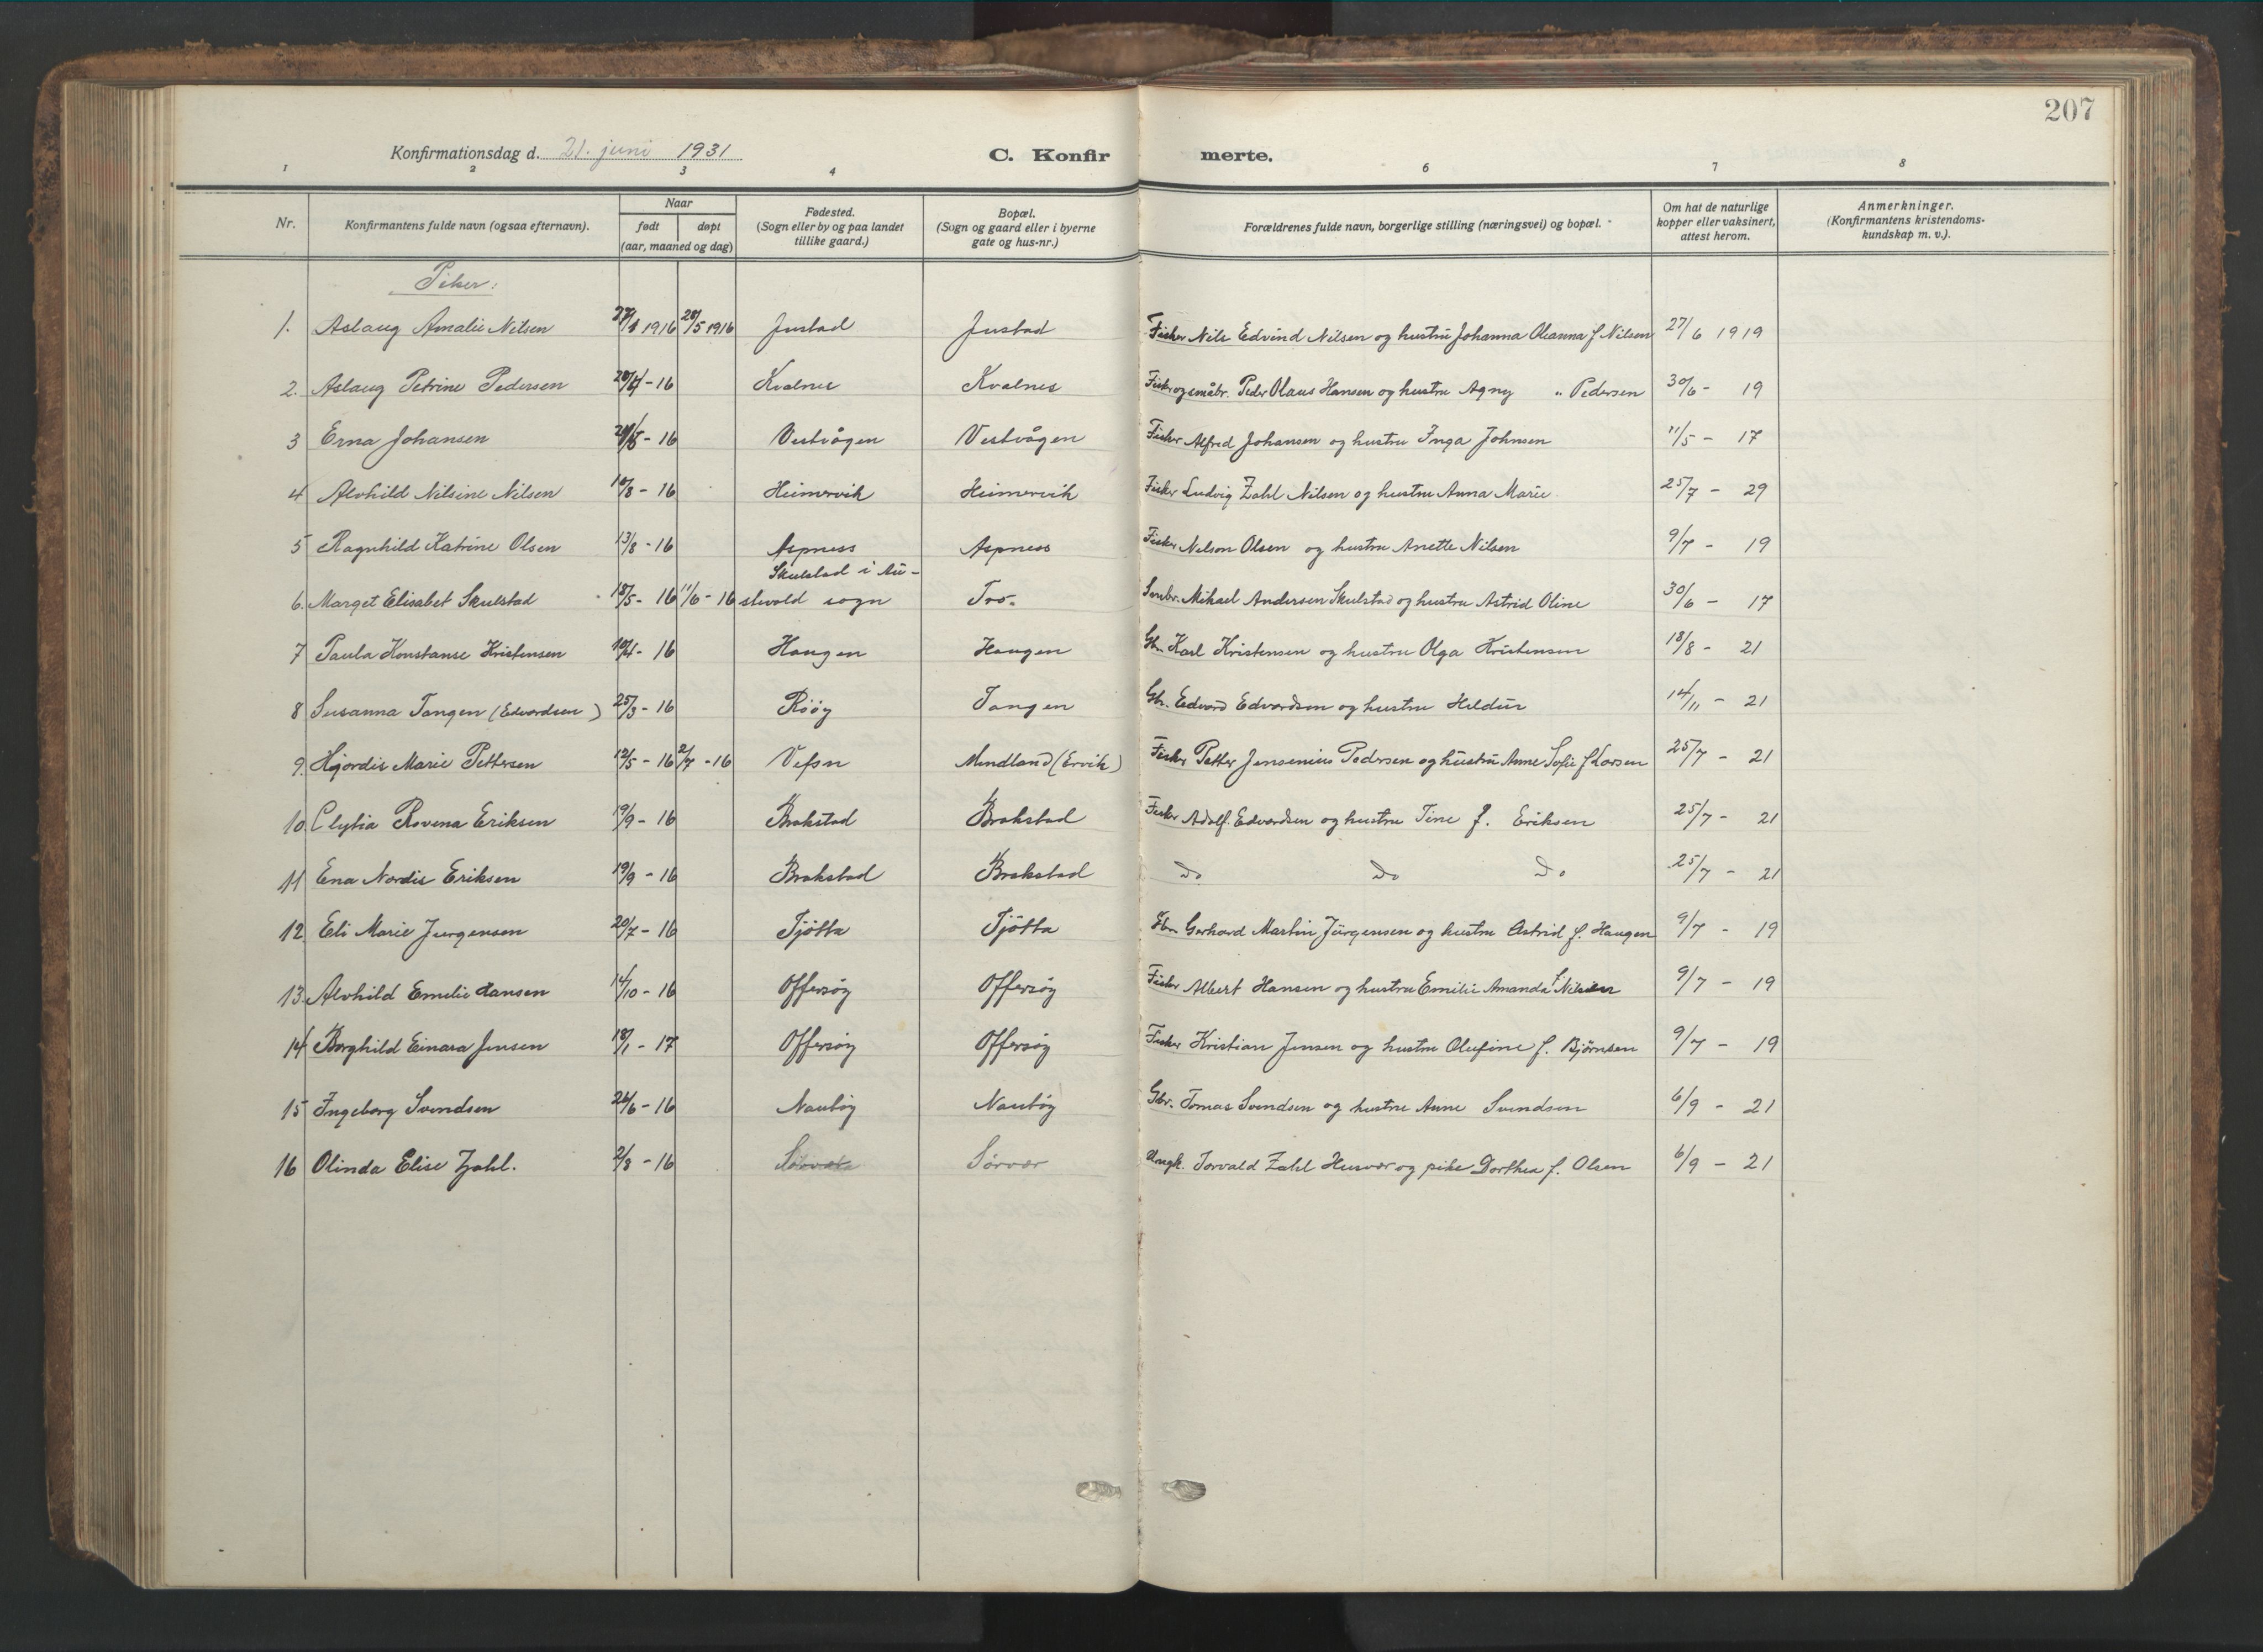 207
Konfirmationsdag d. 21. juni 1931 C. Konfirmerte.
1 2 3 4 6 7 8
Nr. Konfirmantens fulde navn (ogsaa efternavn). Naar født døpt (aar, maaned og dag) Fødested. (Sogn eller by og paa landet tillike gaard.) Bopæl. (Sogn og gaard eller i byerne gate og hus-nr.) Forældrenes fulde navn, borgerlige stilling (næringsvei) og bopæl. Om hat de naturlige kopper eller vaksinert, attest herom. Anmerkninger. (Konfirmantens kristendoms-kundskap m. v.).
Piker:
1. Aslaug Amalie Nilsen 1916 28/5 1916 Justad Justad Fisker Nils Edvind Nilsen og hustru Johanna Oleanna f Nilsen 27/6 1919
2. Aslaug Petrine Pedersen 20/4 - 16 Kvalnes Kvalnes Fisker og småbr. Peder Olaus Hansen og hustru Agny " Pedersen 30/6 - 19
3 Erna Johansen - 16 Vestvågen Vestvågen Fisker Alfred Johansen og hustru Inga Johnsen 11/5 - 17
4 Alvhild Nilsine Nilsen 10/8 - 16 Heimervik Heimervik Fisker Ludvig Zahl Nilsen og hustru Anna Marie 25/7 - 29
5 Ragnhild Katrine Olsen 13/8 - 16 Aspness Aspness Fisker Nelson Olsen og hustru Anette Nilsen 9/7 - 19
6. Marget Elisabet Skulstad 18/5 - 16 11/6 - 16 Skulstad i Au-stvold sogn Tro. Småbr. Mikael Andersen Skulstad og hustru Astrid Oline 30/6 - 17
7 Paula Konstanse Kristensen - 16 Haugen Haugen Gbr. Karl Kristensen og hustru Olga Kristensen 18/8 - 21
8 Susanna Tangen (Edvardsen) 25/3 - 16 Røøy Tangen Gbr. Edvard Edvardsen og hustru Heldur 14/11 - 21
9. Hjørdis Marie Pettersen 12/5 - 16 2/7 - 16 Vefsn Mindland (Ervik) Fisker Petter Jensenius Pedersen og hustru Anne Sofie f Larsen 25/7 - 21
10. Clytia Rovena Eriksen 19/9 - 16 Brakstad Brakstad Fisker Adolf Edvardsen og hustru Tine f. Eriksen 25/7 - 21
11 Ena Nordis Eriksen 19/9 - 16 Brakstad Brakstad Do Do Do 25/7 - 21
12. Eli Marie Jürgensen 20/7 - 16 Tjøtta Tjøtta Gbr. Gerhard Martin Jürgensen og hustru Astrid f. Haugen 9/7 - 19
13. Alvhild Emelie Hansen 14/10 - 16 Offersøy Offersøy Fisker Albert Hansen og hustru Emilie Amanda Nilsen 9/7 - 19
14 Borghild Einara Jensen 18/1 - 17 Offersøy Offersøy Fisker Kristian Jensen og hustru Olufine f. Bjørnsen 9/7 - 19
15 Ingeborg Svendsen 26/6 - 16 Nautøy Nautøy Gbr. Tomas Svendsen og hustru Anne Svendsen 6/9 - 21
16 Olinda Elise Zahl. 2/8 - 16 Sørvær Ungk. Torvald Zahl Husvær og pike Dorthea f. Olsen 6/9 - 21